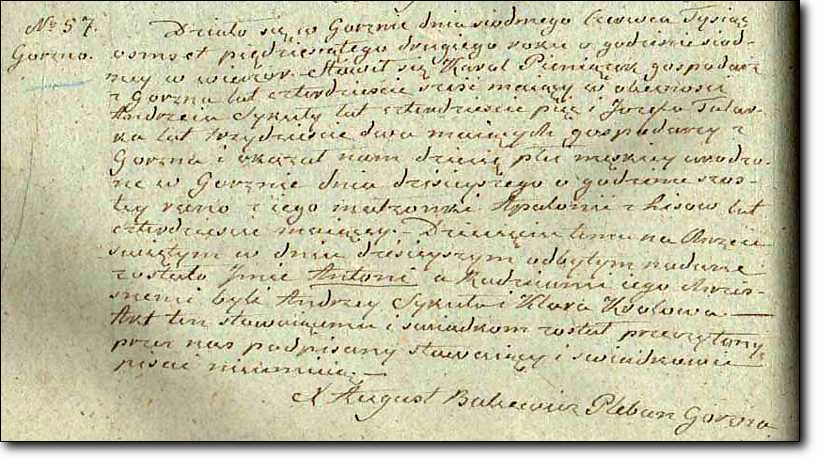 No 57.
Gorzno.
Działo się w Gorznie dnia siodmego Czerwca Tysiąc
osmset piędziesątego drugiego roku o godzinie siod-
mey w wieczor. Stawił się Karol Pieniążek gospodarz
z Gorzna lat czterdzieście sześć maiący w obecności
Andrzeia Sykuły lat czterdzieście pięć i Jozefa
lat trzydzieście dwa maiących gospodarzy z
Gorzna i okazał nam dziecię płci męskiey urodzo-
ne w Gorznie dnia dzisieyszego o godzinie szos-
tey rano z iego małżonki Apolonii z Lisow lat
czterdzieście maiącey.- Dziecięciu temu na Chrzcie
świętym w dniu dzisieyszym odbytym nadane
zostało Jmie Antoni a Rodzicami iego Chrzes-
nemi byli Andrzey Sykuła i Klara
Akt ten stawaiącemu i świadkom został przeczytany
przez nas podpisany stawaiący i świadkowie
pisać nieumieią.-
X August Plebon Gorzna